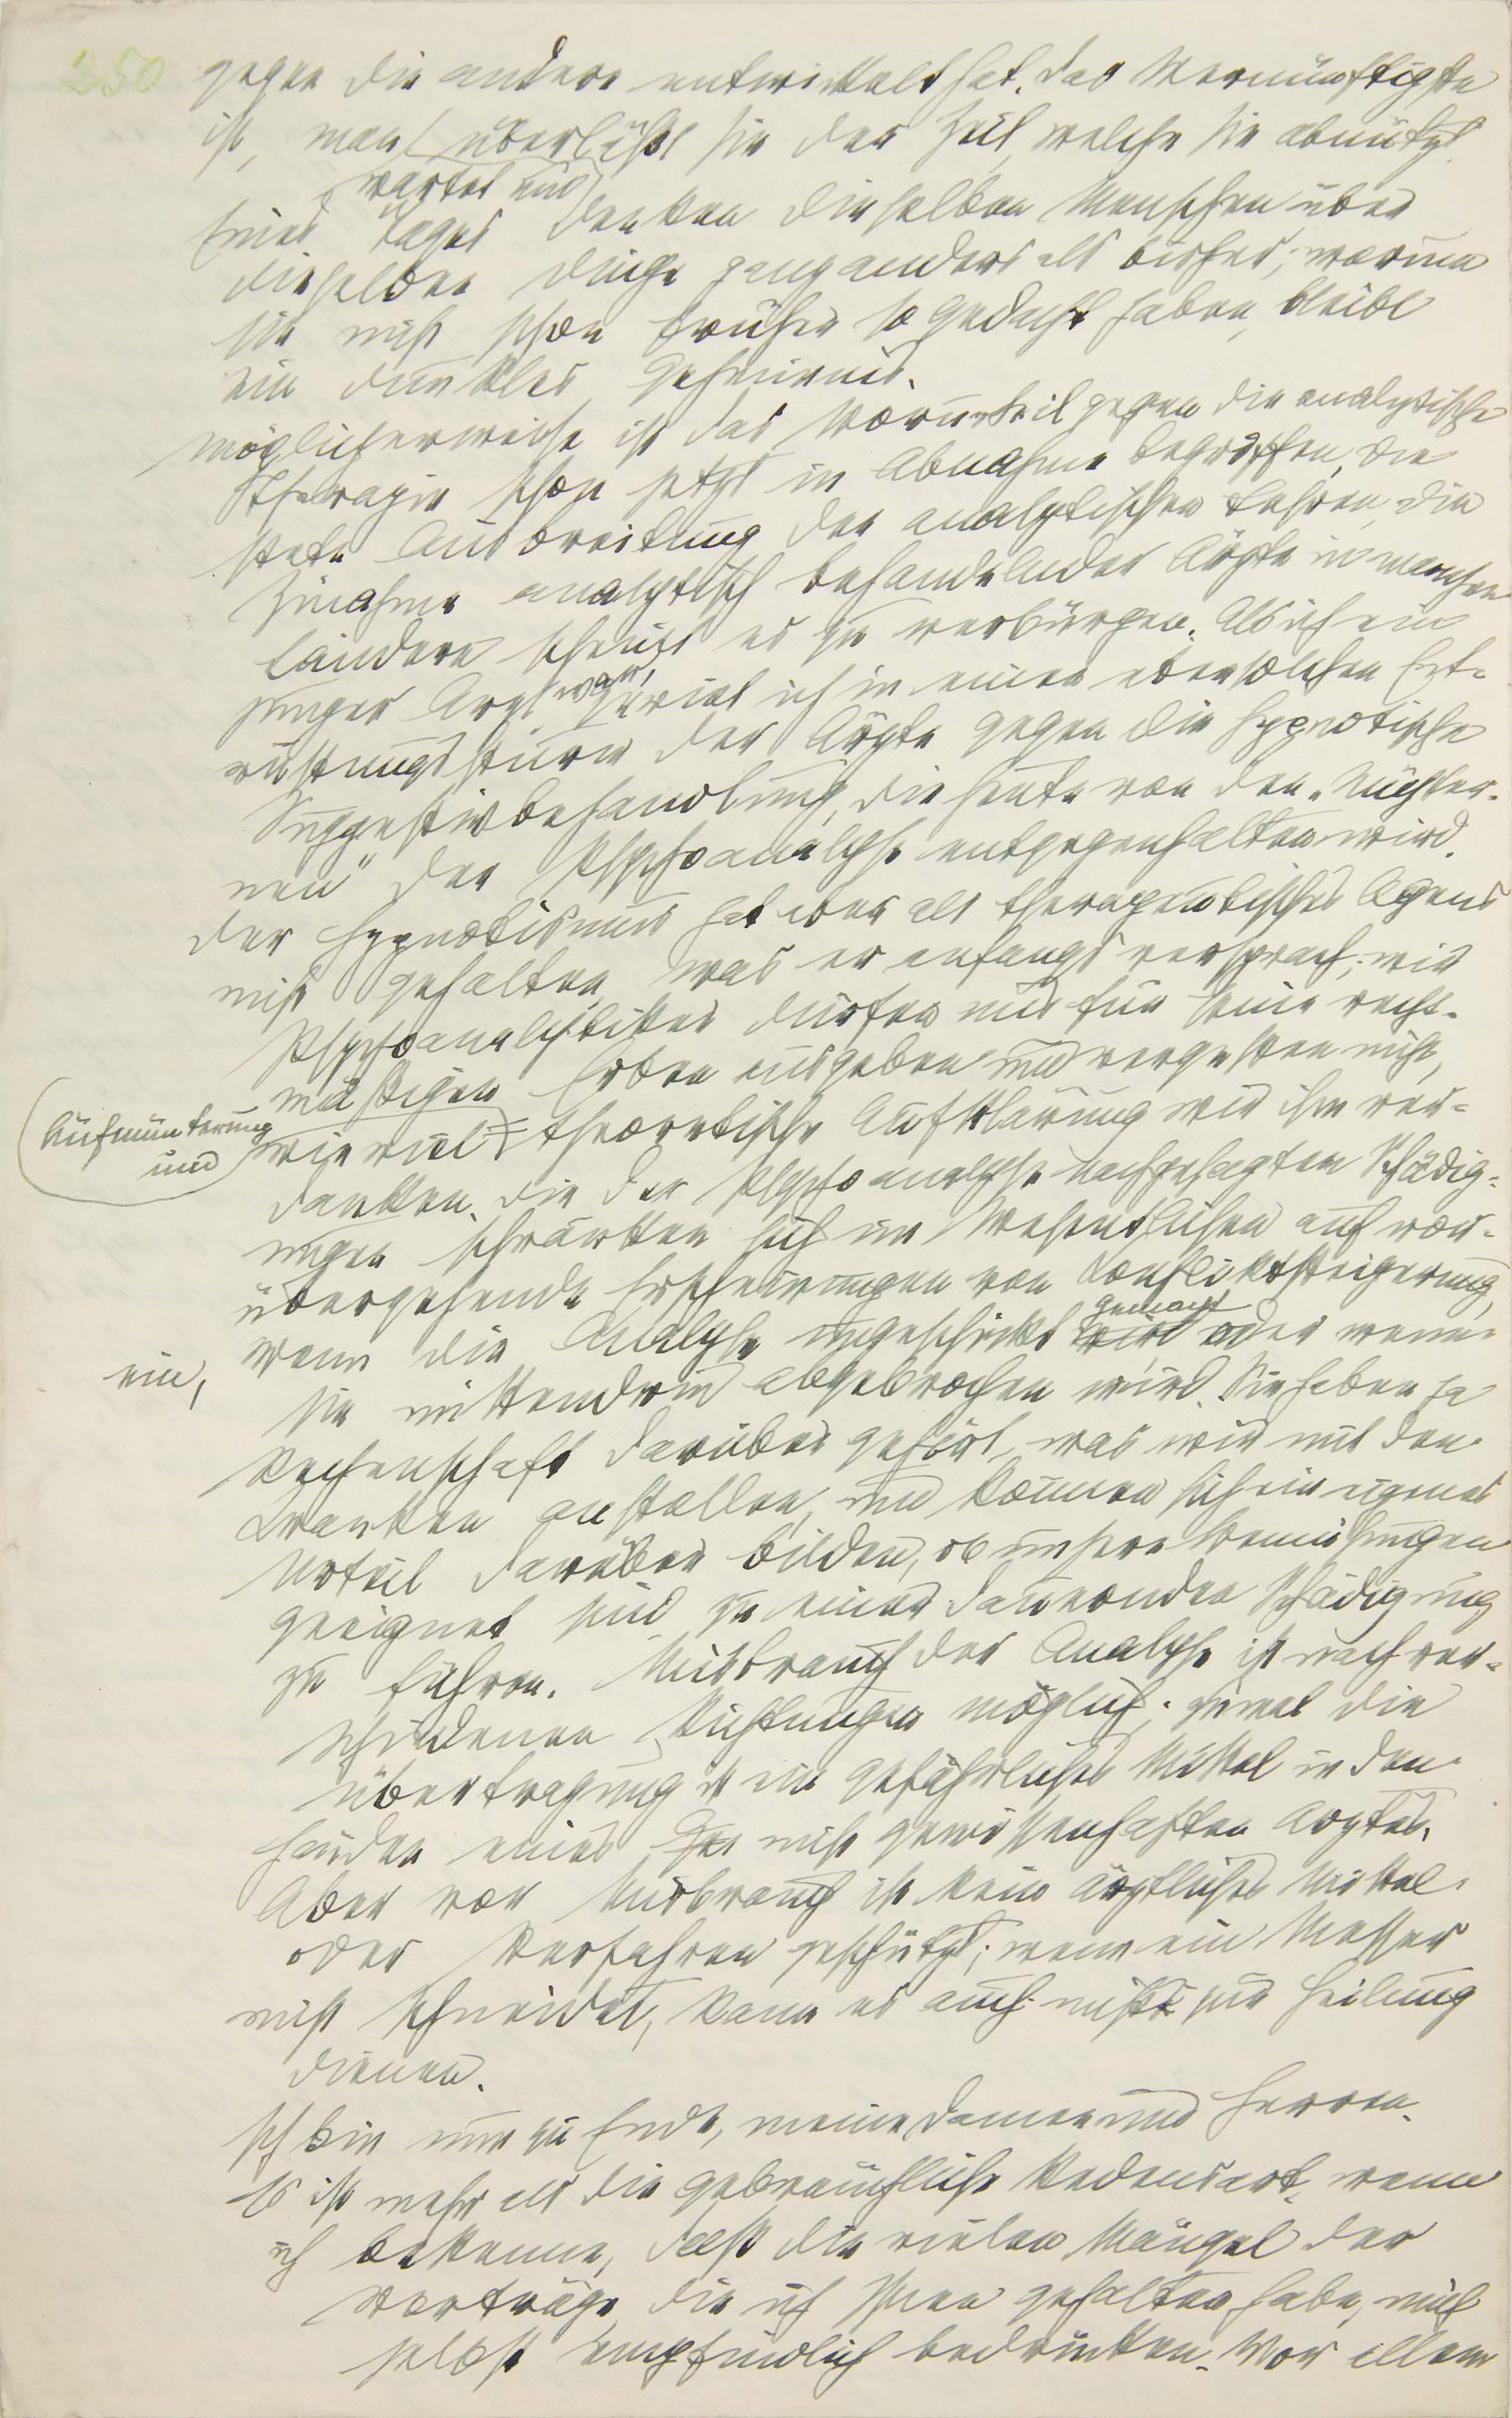 250
gegen die andere entwickelt hat. Das Vernünftigste
ist, man überläßt sie der Zeit, welche sie abnützt.
wartet und
Eines Tages denken dieselben Menschen über
dieselben Dinge ganz anders als bisher; warum
sie nicht schon früher so gedacht haben, bleibt
ein dunkles Geheimnis.
Möglicherweise ist das Vorurteil gegen die analytische
Therapie schon jetzt in Abnahme begriffen. Die
stete Ausbreitung der analytischen Lehren, die
Zunahme analytisch behandelnder Ärzte in manchen
Ländern scheint es zu verbürgen. Als ich ein
junger Arzt war, geriet ich in einen ebensolchen Ent-
rüstungssturm der Ärzte gegen die hypnotische
Suggestivbehandlung, die heute von den „Nüchter-
nen“ der Psychoanalyse entgegengehalten wird.
Der Hypnotismus hat aber als therapeutisches Agens
nicht gehalten, was er anfangs versprach; wir
Psychoanalytiker dürfen uns für seine recht-
mäßigen Erben ausgeben und vergessen nicht,
wieviel theoretische Aufklärung wir ihm ver-
Aufmunterung
und
danken. Die der Psychoanalyse nachgesagten Schädig-
ungen schränken sich im Wesentlichen auf vor-
übergehende Erscheinungen von Konfliktsteigerung
ein,
wenn die Analyse ungeschickt wird oder wenn
gemacht
sie mittendrin abgebrochen wird. Sie haben ja
Rechenschaft darüber gehört, was wir mit den
Kranken anstellen, und können sich ein eigenes
Urteil darüber bilden, ob unsere Bemühungen
geeignet sind, zu einer dauernden Schädigung
zu führen. Misbrauch der Analyse ist nach ver-
schiedenen Richtungen möglich; zumal die
Übertragung ist ein gefährliches Mittel in den
Händen eines nicht gewissenhaften Arztes.
Aber vor Misbrauch ist kein ärztliches Mittel
oder Verfahren geschützt; wenn ein Messer
nicht schneidet, kann es auch nicht zur Heilung
dienen.
Ich bin nun zu Ende, meine Damen und Herren.
Es ist mehr als die gebräuchliche Redensart, wenn
ich bekenne, daß die vielen Mängel der
Vorträge, die ich Ihnen gehalten habe, mich
selbst empfindlich bedrücken. Vor allem